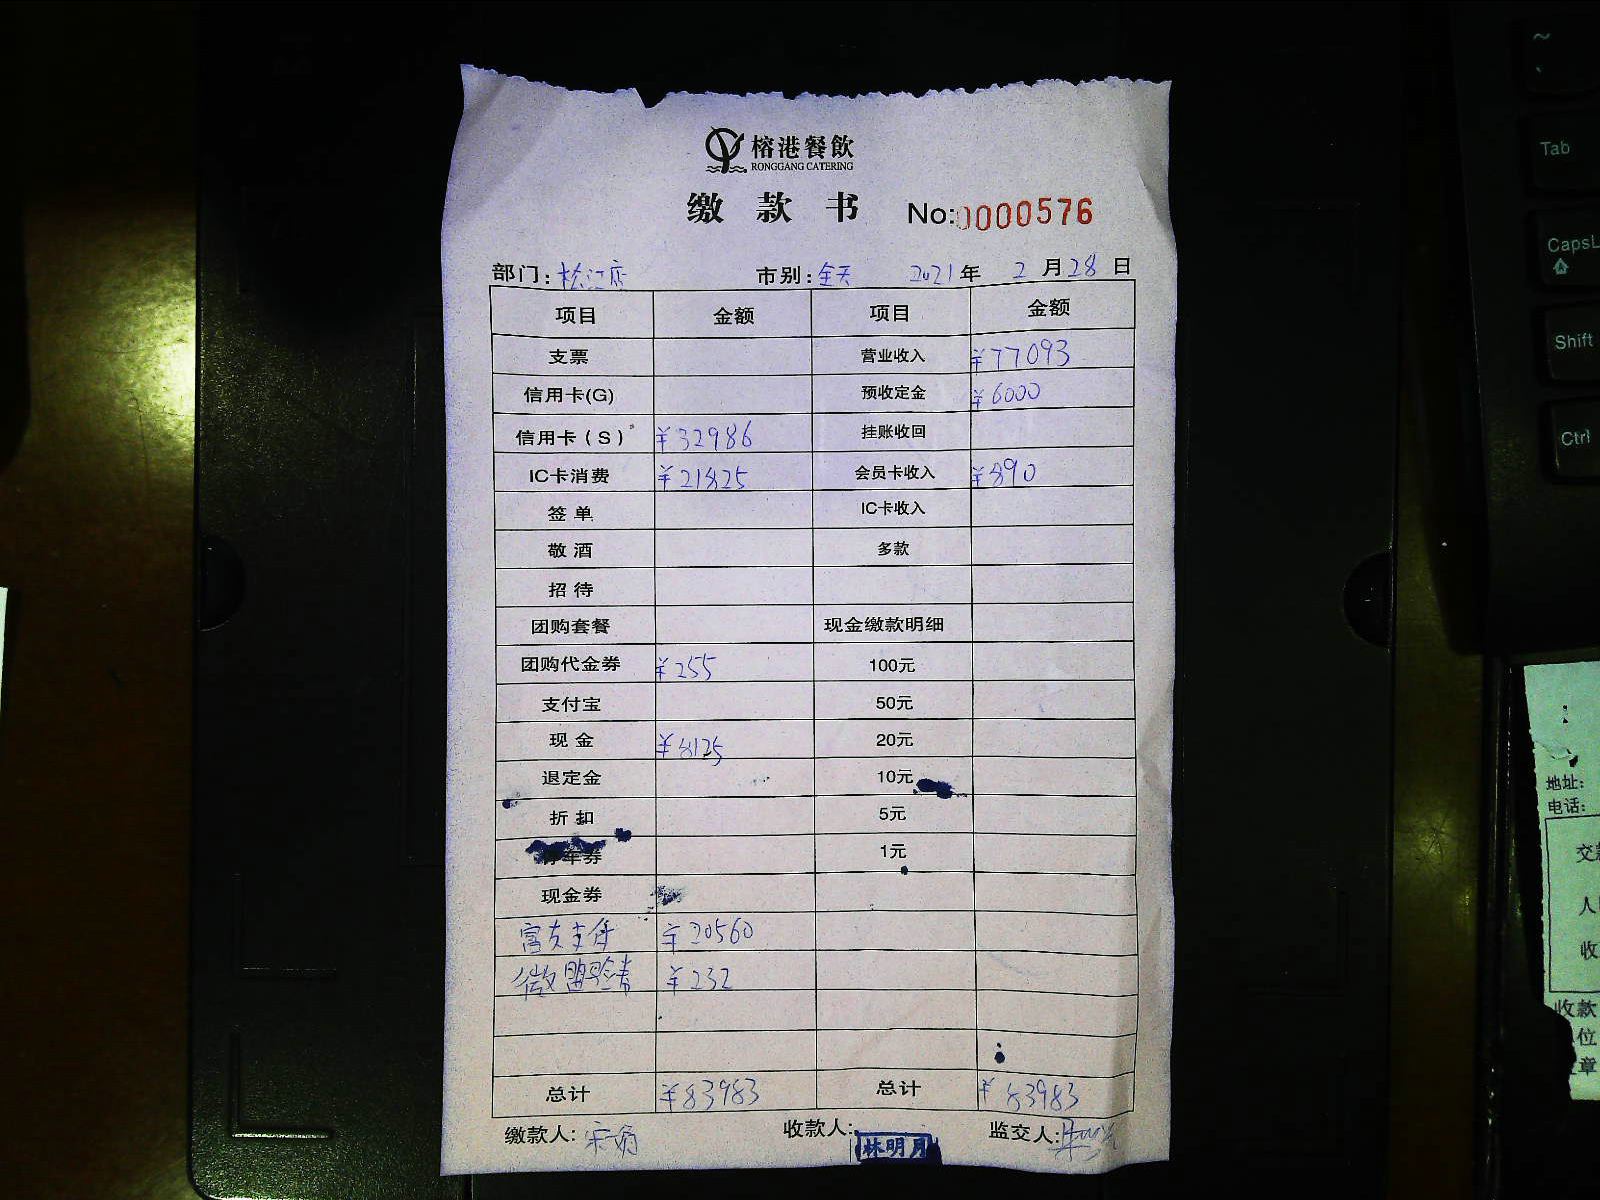 榕港餐飲
RONGGANG CATERING
缴款书 No:0000576
部门:松江店 市别:全天 2021年2月28日
项目 金额 项目 金额
支票 营业收入 ¥77093
信用卡(G) 预收定金 ¥6000
信用卡(S) ¥32986 挂账收回
IC卡消费 ¥21825 会员卡收入 ¥890
签单 IC卡收入
敬酒 多款
招待
团购套餐 现金缴款明细
团购代金券 ¥255 100元
支付宝 50元
现金 ¥8125 20元
退定金 10元
折扣 5元
停车券 1元
现金券
富友支付 ¥20560
微盟 ¥232
总计 ¥83983 总计 ¥83983
缴款人: 收款人:林明月 监交人:
~
`
Tab
CapsL
Shift
Ctrl
地址:
电话:
交款
人
收
收款
位
章